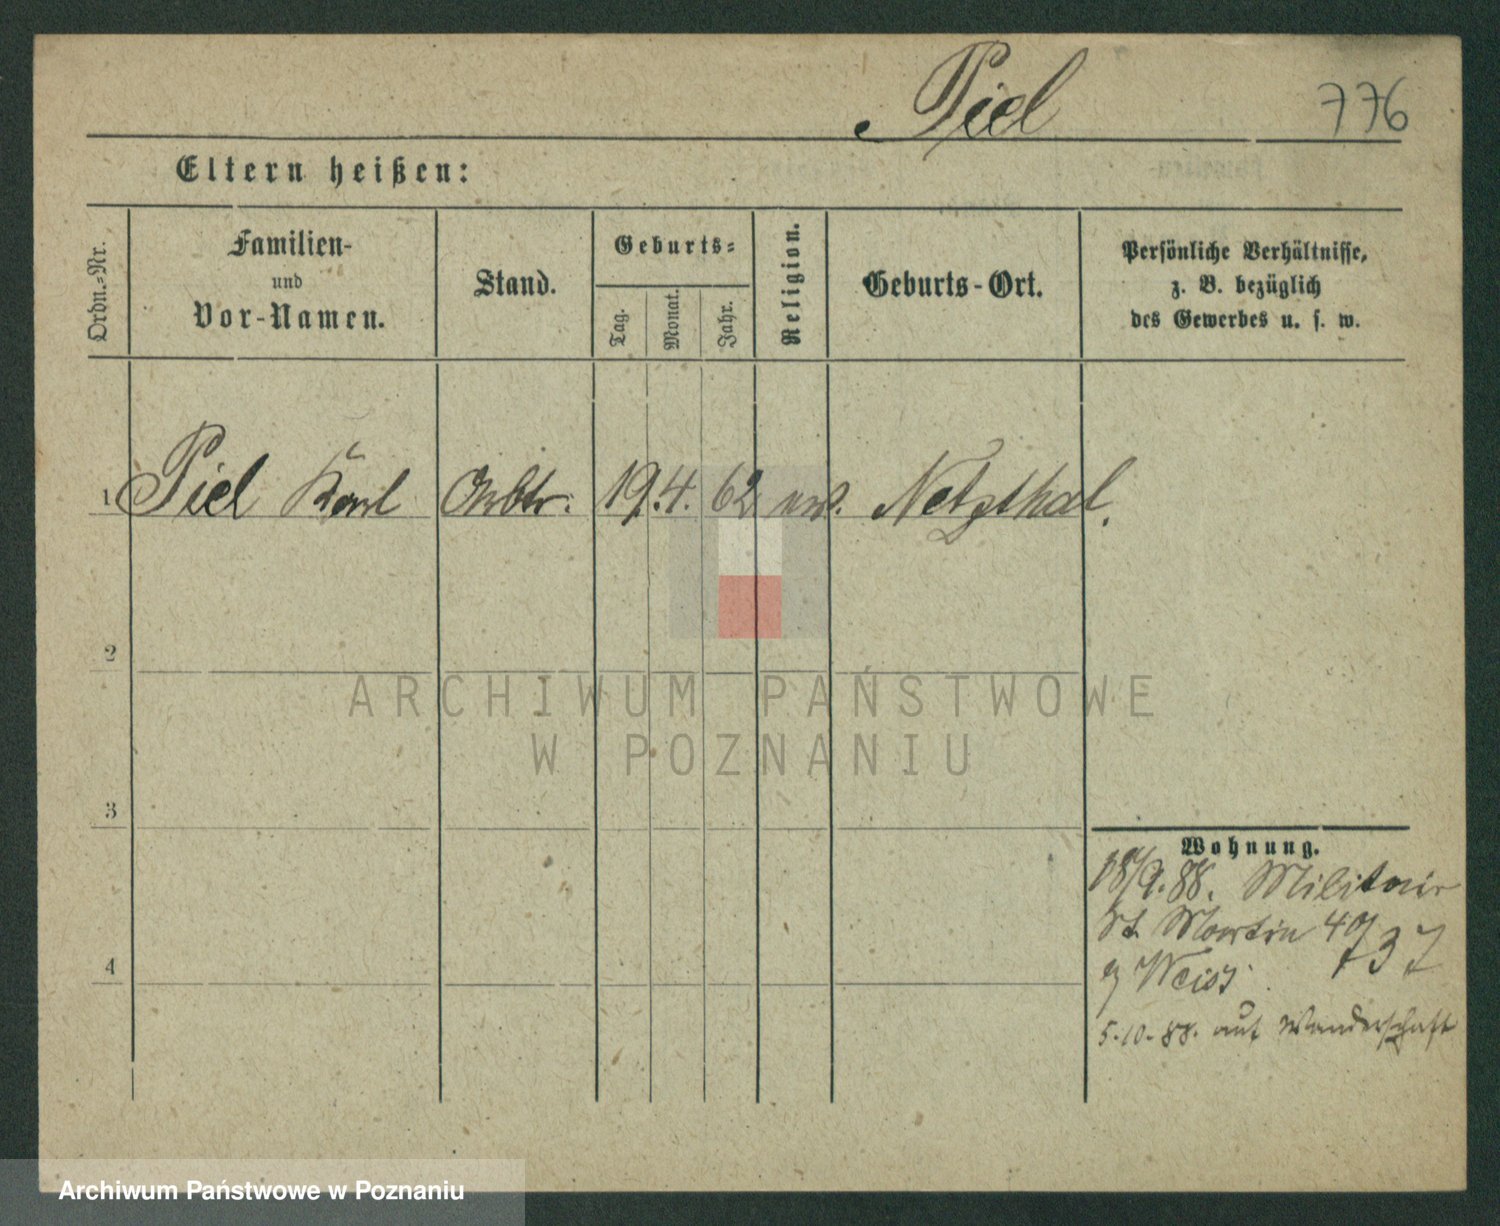 Piel 776
Eltern heißen:
Ordn.-Nr.
Familien-
und
Vor-Namen.
Stand.
Geburts-
Tag.
Monat.
Jahr.
Religion.
Geburts-Ort.
Persönliche Verhältnisse,
z. B. bezüglich
des Gewerbes u. s. w.
1 Piel Karl Arbtr. 19. 4. 62 Netzthal.
2
ARCHIWUM PAŃSTWOWE
W POZNANIU
3
Wohnung.
18/9. 88. Militair
St. Martin 49
737
Weiss
4
5.10.88. auf Wanderschaft
Archiwum Państwowe w Poznaniu